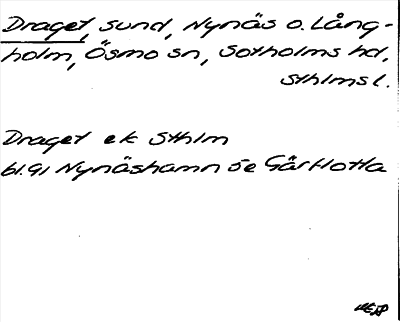 Draget, sund, Nynäs o. Lång-
holm, Ösmo sn, Sotholms hd,
Sthlms l.
Draget ek Sthlm
bl.91 Nynäshamn 5e Gårflotta